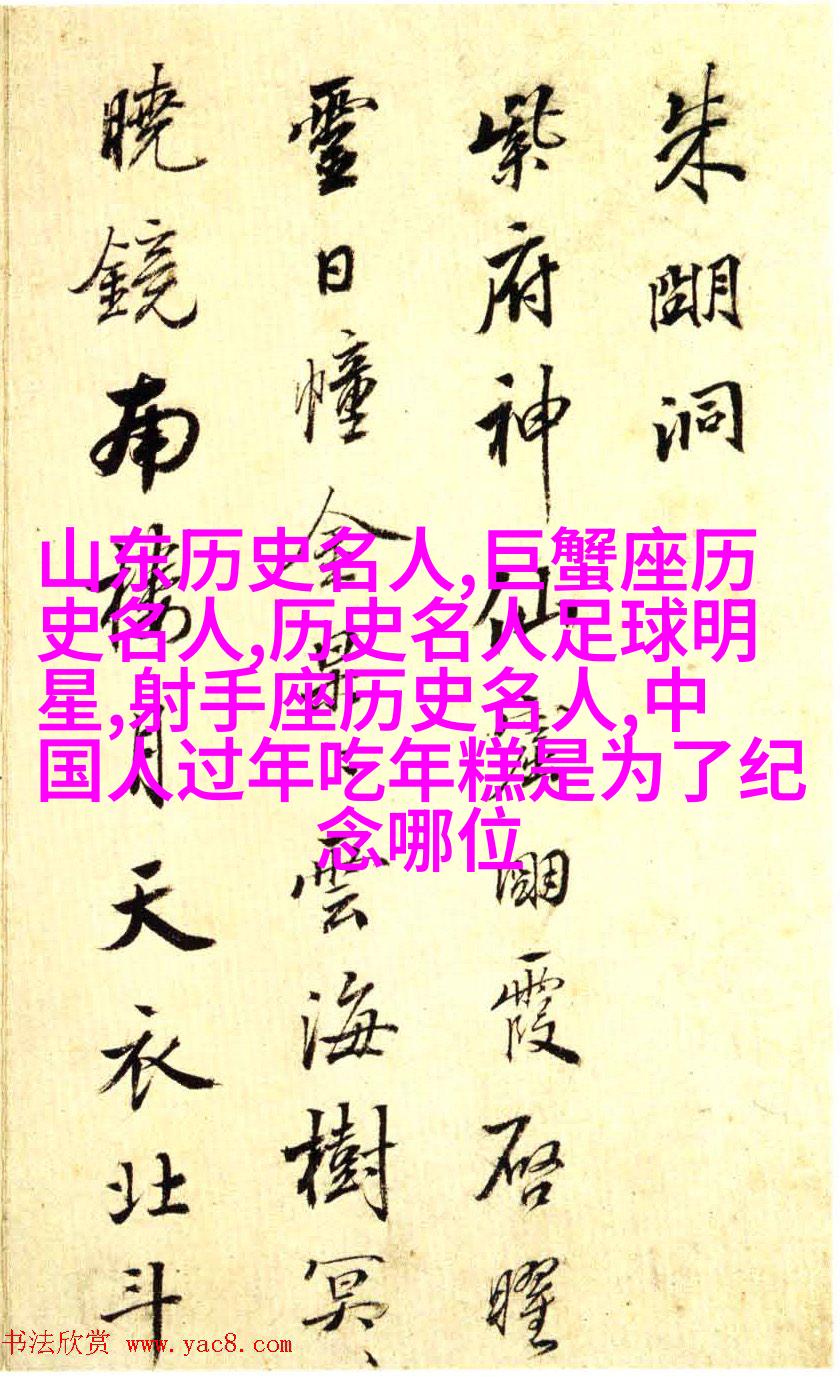 朱明洞
紫府神仙 明霞启曜
灵日幢 金景 云海樹冥、
曉鏡南樓月天衣北斗
山东历史名人,巨蟹座历
史名人,历史名人足球明
星,射手座历史名人,中
国人过年吃年糕是为了纪
念哪位
书法欣赏 www.yac8.com